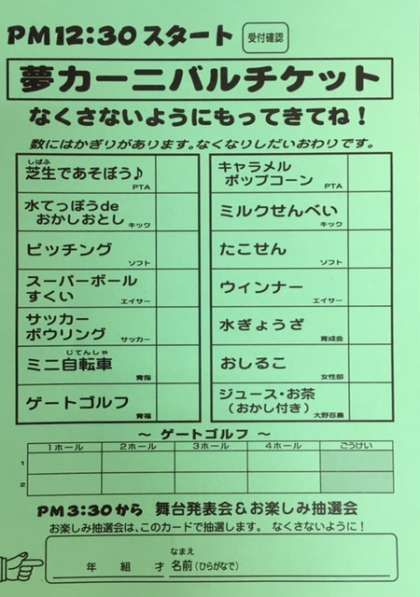 PM12:30スタート 受付確認
夢カーニバルチケット
なくさないようにもってきてね!
数にはかぎりがあります。なくなりしだいおわりです。
しばふ
芝生であそぼう♪
PTA
水てっぽうde
おかしおとし
キック
ピッチング
ソフト
スーパーボール
すくい
エイサー
サッカー
ボウリング
サッカー
じてんしゃ
ミニ自転車
青指
ゲートゴルフ
青福
キャラメル
ポップコーン
PTA
ミルクせんべい
キック
たこせん
ソフト
ウィンナー
エイサー
水ぎょうざ
育成会
おしるこ
女性部
ジュース・お茶
(おかし付き)
大野百農
~ ゲートゴルフ ~
1ホール 2ホール 3ホール 4ホール ごうけい
1
2
PM3:30から 舞台発表会&お楽しみ抽選会
お楽しみ抽選会は、このカードで抽選します。 なくさないように!
なまえ
年 組 才 名前(ひらがなで)